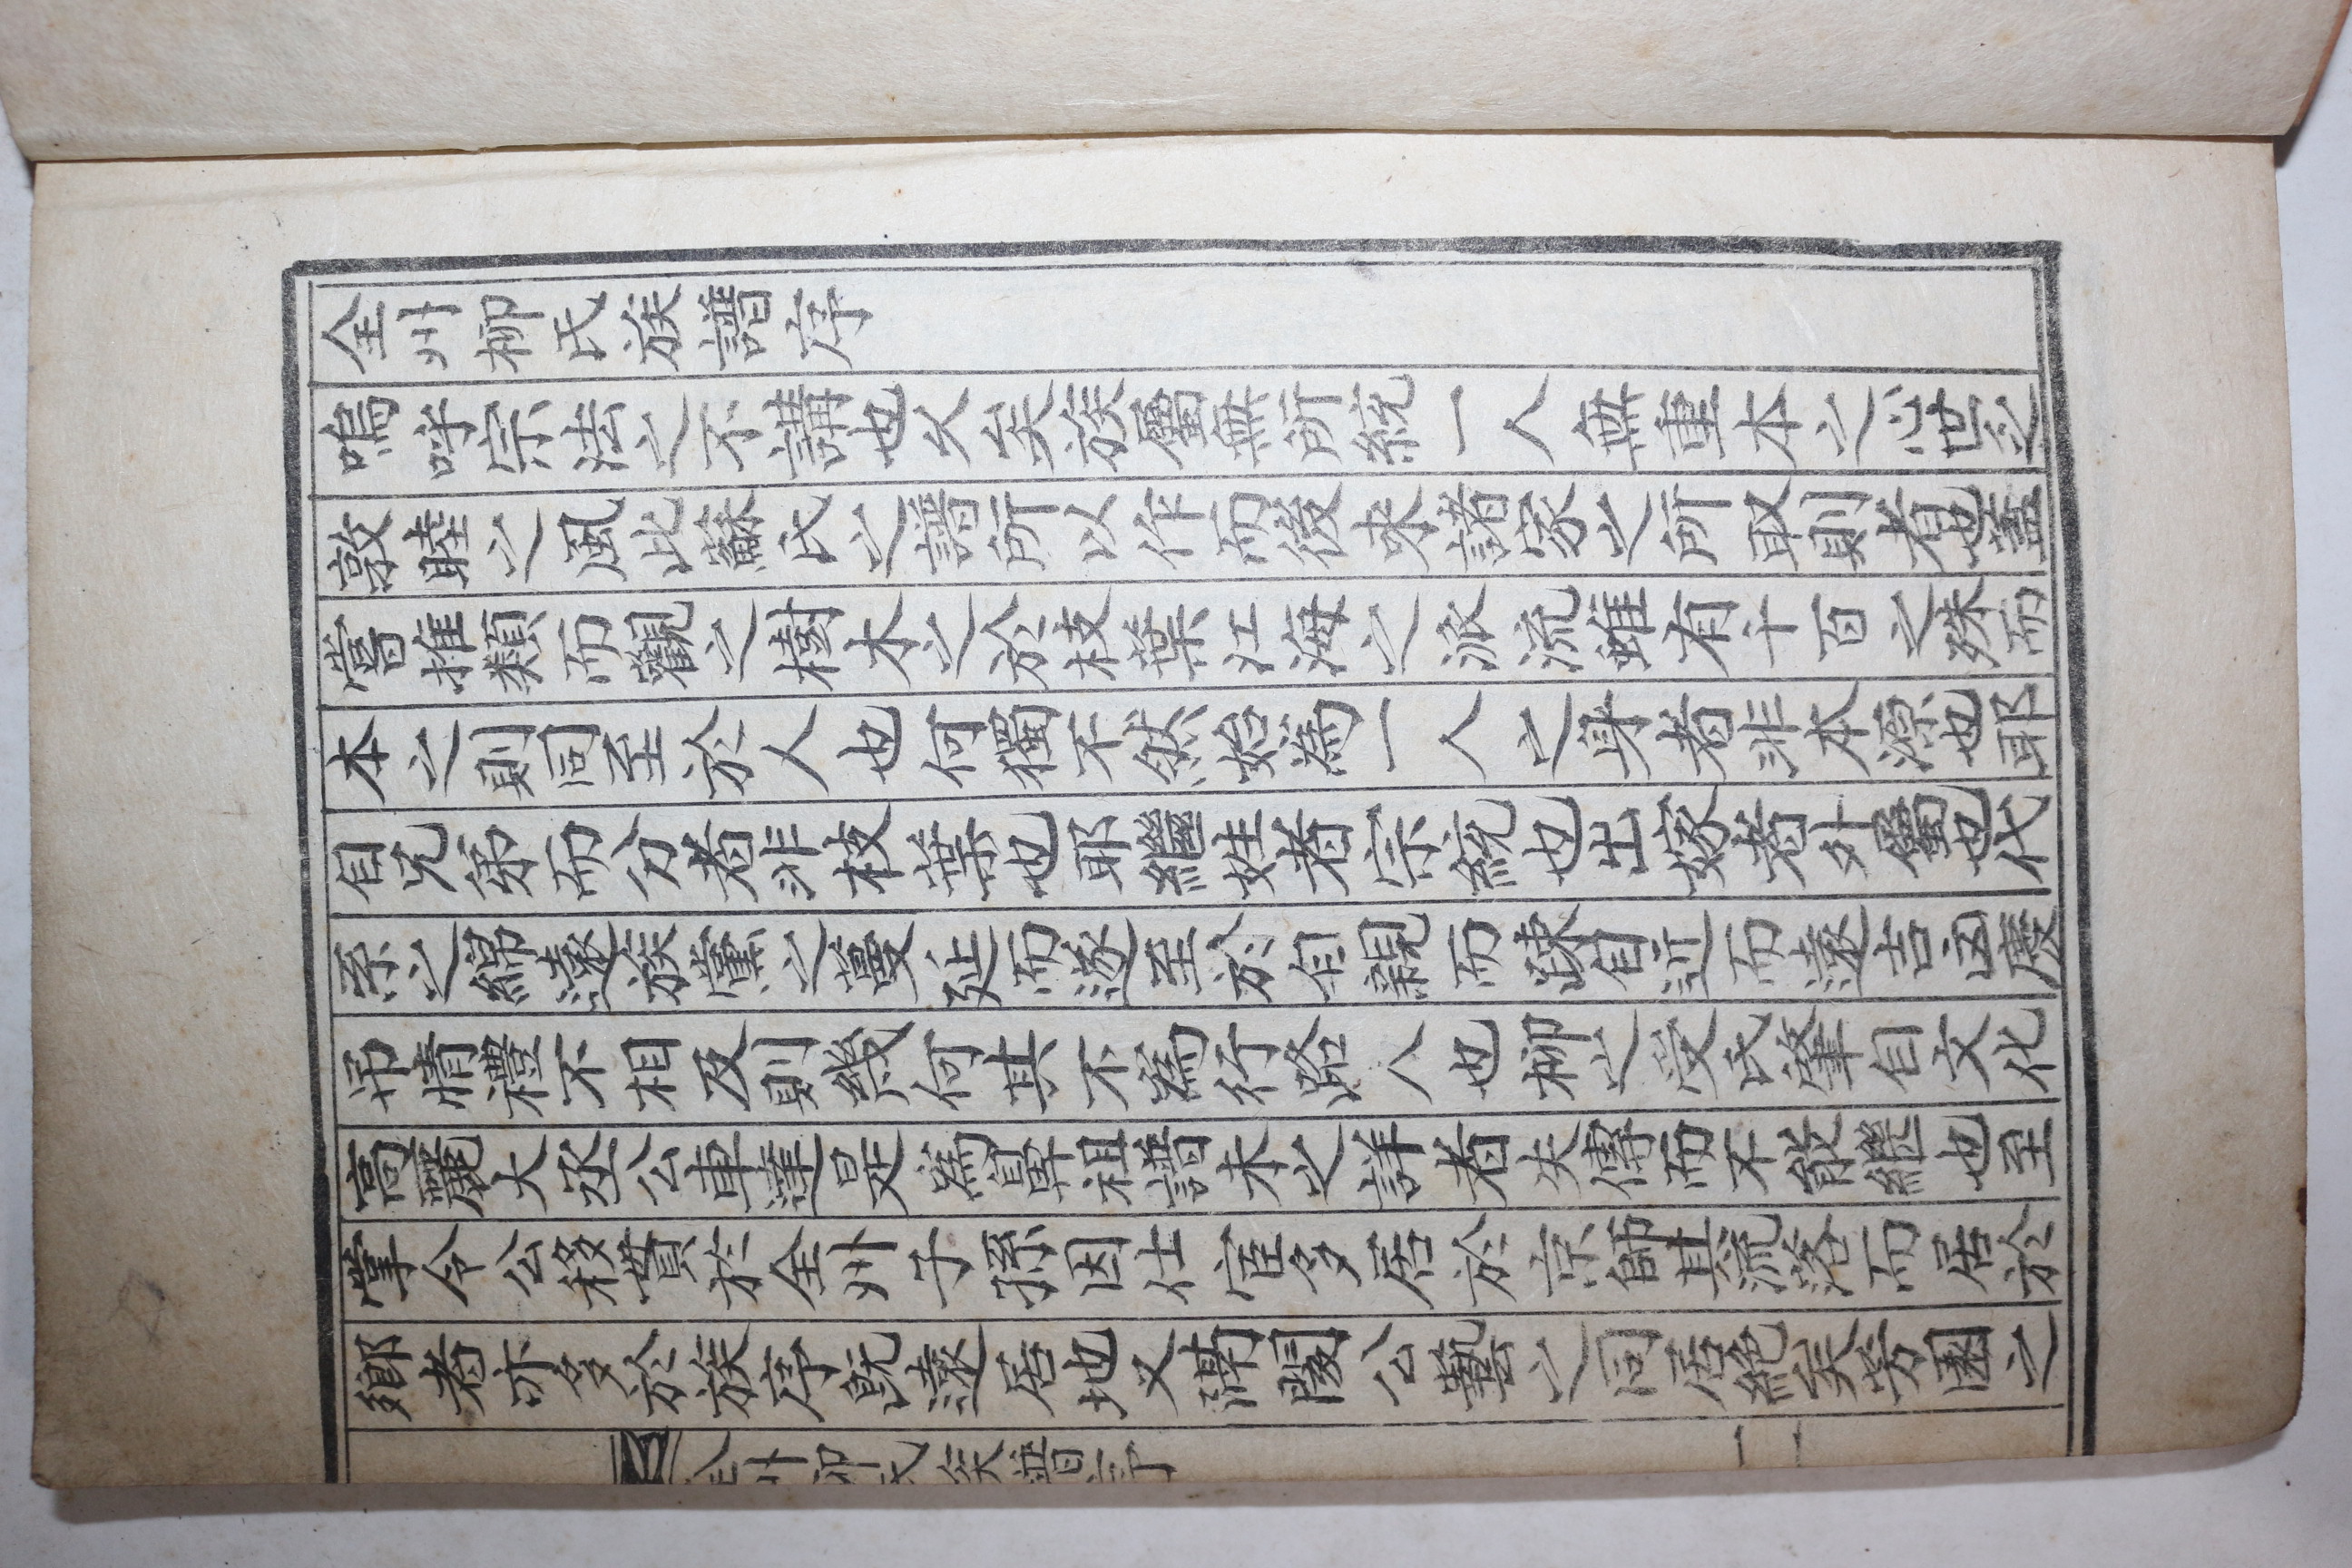 全州柳氏族譜序
嗚呼宗法之不講也久矣族屬無所統一人無重本之心世乏
敦睦之風此蘇氏之譜所以作而後來諸家之所取則者也蓋
嘗推類而觀之樹木之於枝葉江海之派流雖有千百之殊而
本之則同至於人也何獨不然始爲一人之身者非本源也耶
自兄弟而分者非枝葉也耶繼姓者宗統也出嫁者外屬也代
系之綿遠族黨之蔓延而遂至於自親而踈自近而遠吉凶慶
吊情禮不相及則幾何其不爲行路人也柳之受氏肇自文化
高麗大丞公車達是爲鼻祖譜未之詳者失傳而不能繼也至
掌令公移貫於全州子孫因仕宦多居於京師其流落而居於
鄕者亦多於族序旣遠居地又隔闋公藝之同居絶矣芳園之
全州柳氏族譜序 一